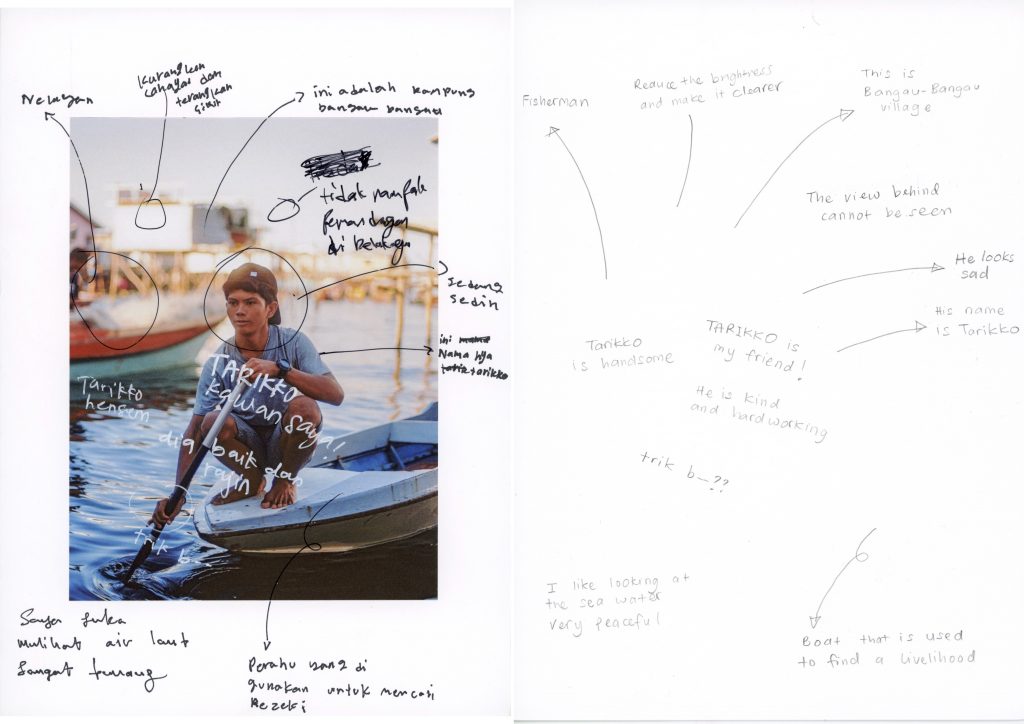 Nelayan
Kurangkan
cahaya dan
terangkan
ini adalah kampung
bangau bangau
tidak nampak
Pemandangan
di belakang
Sedang
sedih
ini
Nama nya
tarikko
TARIKKO
kawan saya!
Tarikko
hensem
dia baik dan
rajin
trik b---
Saya suka
mulihat air laut
Sangat tenang
Perahu yang di
gunakan untuk mencari
Rezeki
Fisherman
Reduce the brightness
and make it clearer
This is
Bangau-Bangau
village
The view behind
cannot be seen
He looks
sad
His name
is Tarikko
Tarikko
is handsome
TARIKKO is
my friend!
He is kind
and hardworking
trik b--??
I like looking at
the sea water
very peaceful
Boat that is used
to find a livelihood